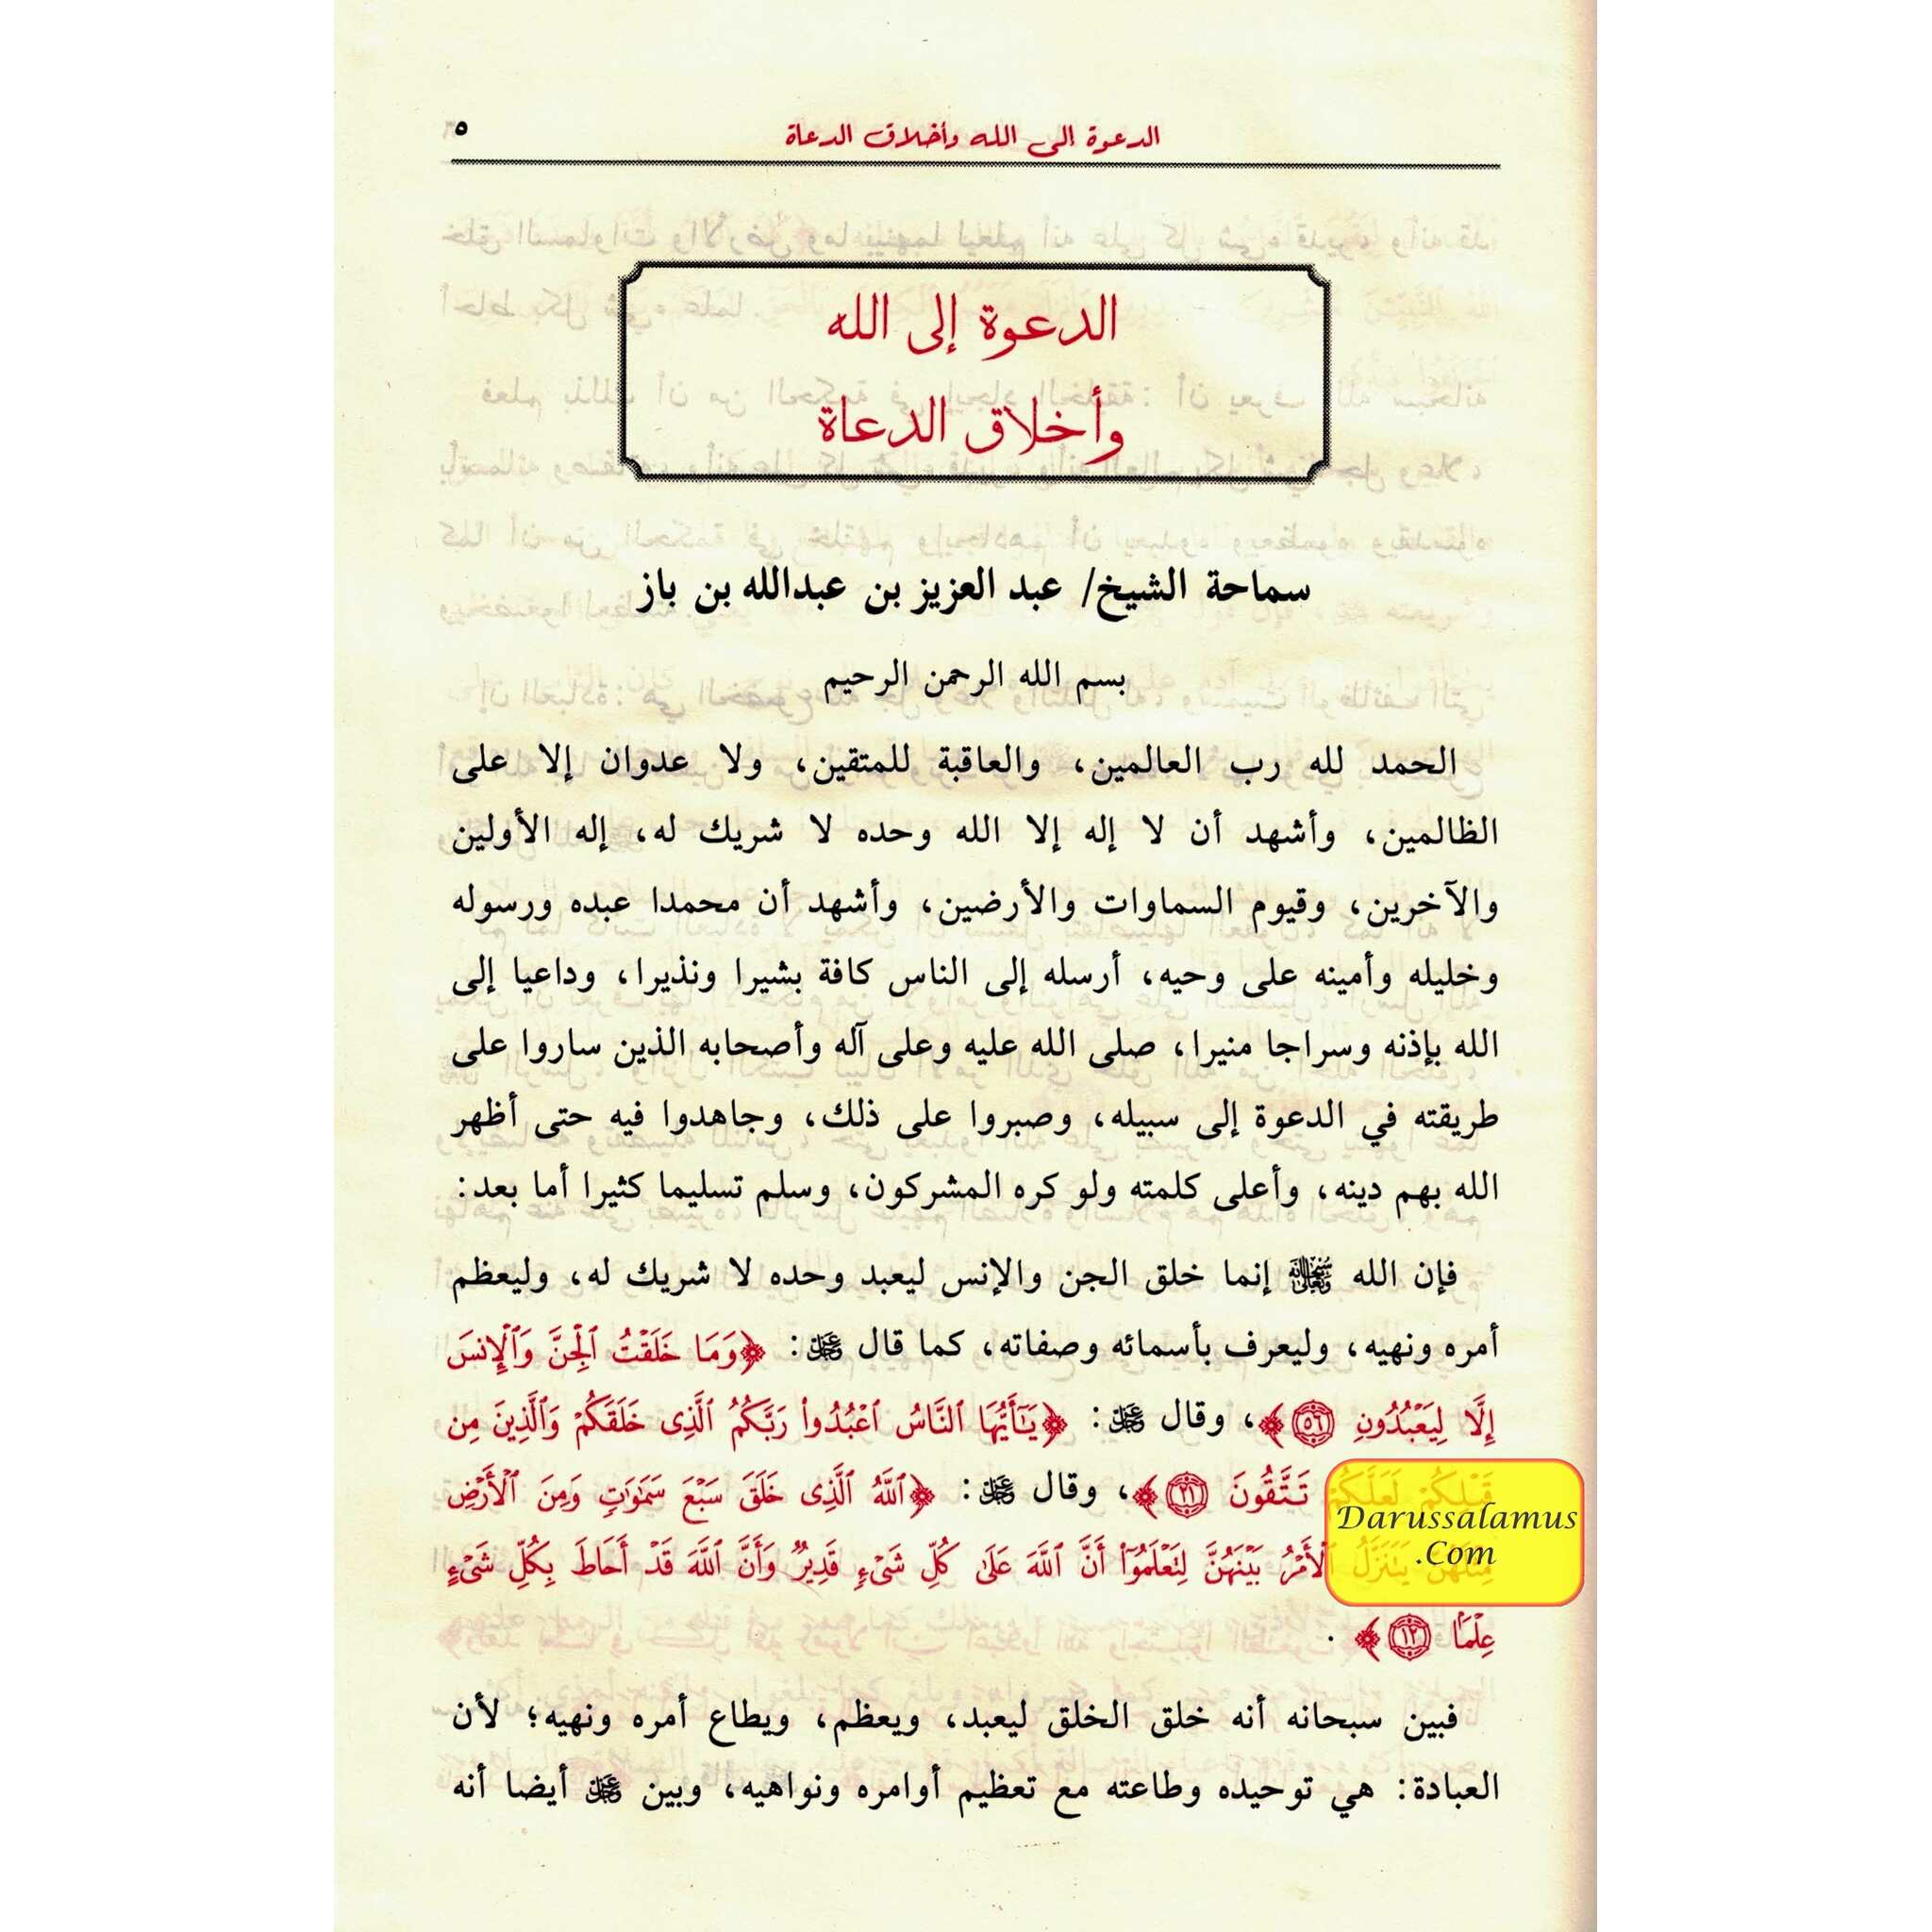 الدعوة إلى الله وأخلاق الدعاة ٥
الدعوة إلى الله
وأخلاق الدعاة
سماحة الشيخ/ عبد العزيز بن عبدالله بن باز
بسم الله الرحمن الرحيم
الحمد لله رب العالمين، والعاقبة للمتقين، ولا عدوان إلا على
الظالمين، وأشهد أن لا إله إلا الله وحده لا شريك له، إله الأولين
والآخرين، وقيوم السماوات والأرضين، وأشهد أن محمدا عبده ورسوله
وخليله وأمينه على وحيه، أرسله إلى الناس كافة بشيرا ونذيرا، وداعيا إلى
الله بإذنه وسراجا منيرا، صلى الله عليه وعلى آله وأصحابه الذين ساروا على
طريقته في الدعوة إلى سبيله، وصبروا على ذلك، وجاهدوا فيه حتى أظهر
الله بهم دينه، وأعلى كلمته ولو كره المشركون، وسلم تسليما كثيرا أما بعد:
فإن الله سبحانه وتعالى إنما خلق الجن والإنس ليعبد وحده لا شريك له، وليعظم
أمره ونهيه، وليعرف بأسمائه وصفاته، كما قال عز وجل: ﴿وَمَا خَلَقْتُ ٱلْجِنَّ وَٱلْإِنسَ
إِلَّا لِيَعْبُدُونِ ٥٦﴾، وقال عز وجل: ﴿يَٰٓأَيُّهَا ٱلنَّاسُ ٱعْبُدُوا۟ رَبَّكُمُ ٱلَّذِى خَلَقَكُمْ وَٱلَّذِينَ مِن
قَبْلِكُمْ لَعَلَّكُمْ تَتَّقُونَ ٢١﴾، وقال عز وجل: ﴿ٱللَّهُ ٱلَّذِى خَلَقَ سَبْعَ سَمَٰوَٰتٍ وَمِنَ ٱلْأَرْضِ
مِثْلَهُنَّ يَتَنَزَّلُ ٱلْأَمْرُ بَيْنَهُنَّ لِتَعْلَمُوٓا۟ أَنَّ ٱللَّهَ عَلَىٰ كُلِّ شَىْءٍ قَدِيرٌ وَأَنَّ ٱللَّهَ قَدْ أَحَاطَ بِكُلِّ شَىْءٍ
عِلْمًۢا ١٢﴾.
فبين سبحانه أنه خلق الخلق ليعبد، ويعظم، ويطاع أمره ونهيه؛ لأن
العبادة: هي توحيده وطاعته مع تعظيم أوامره ونواهيه، وبين عز وجل أيضا أنه
Darussalamus
.Com